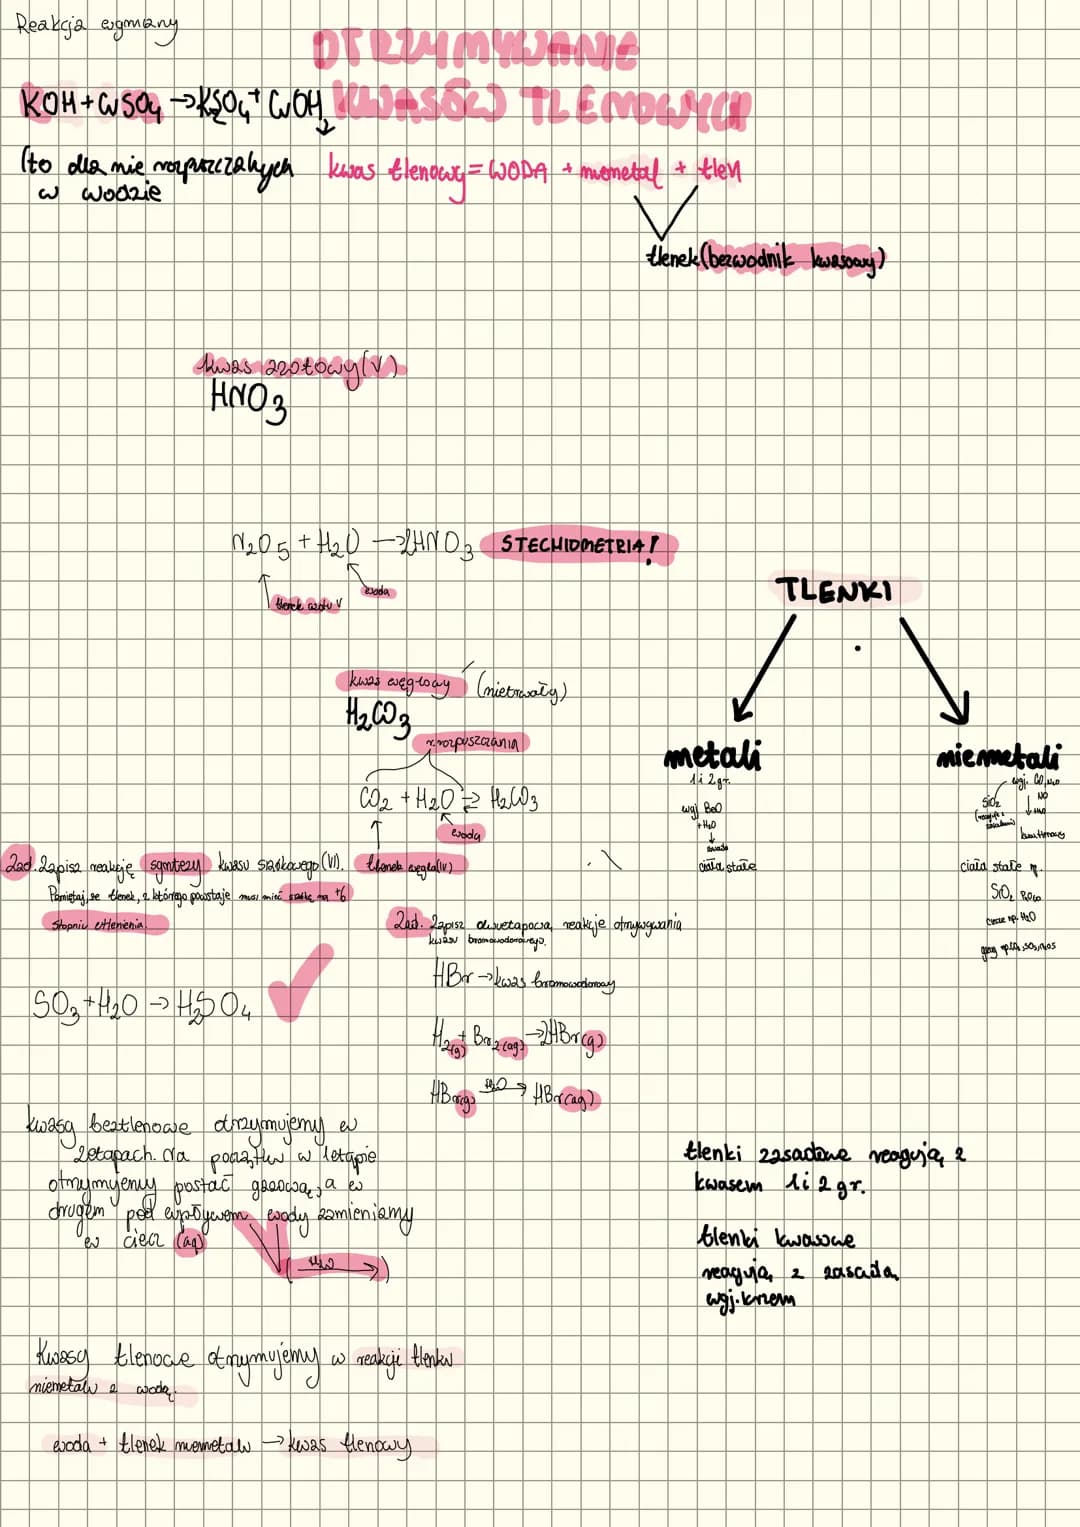 Reakcja wymiany
OTRZYMYWANIE
KWASÓW TLENOWYCH
KOH + CuSO4 → K2SO4 + CuOH ↓
(to dla nie rozpuszczalnych
w wodzie
kwas tlenowy = WODA + niemetal + tlen
tlenek (bezwodnik kwasowy)
kwas azotowy (V)
HNO3
N2O5 + H2O → 2HNO3 STECHIOMETRIA!
tlenek azotu V
woda
TLENKI
kwas węglowy (nietrwały)
H2CO3
r. rozpuszczania
CO2 + H2O ⇄ H2CO3
woda
tlenek węgla (IV)
metali
1 i 2 gr.
wyj BeO
+ H2O
↓
zasada
ciała stałe
niemetali
wyj. CO, N2O
NO
SiO2
(reaguje z
zasadami)
↓ + H2O
kwas tlenowy
ciała stałe
SiO2
ciecze np. H2O
gazy np.
Zad. Zapisz reakcję syntezy kwasu siarkowego (VI).
Pamiętaj, że tlenek, z którego powstaje musi mieć siarkę na +6
stopniu utlenienia.
SO3 + H2O → H2SO4
Zad. Zapisz dwuetapową reakcje otrzymywania
kwasu bromowodorowego.
HBr → kwas bromowodorowy
H2(g) + Br2(ag) → 2HBr(g)
HBr(g) H2O → HBr(ag)
Kwasy beztlenowe otrzymujemy w
2etapach. Na początku w 1etapie
otrzymujemy postać gazową, a w
drugim pod wpływem wody zamieniamy
w ciecz (aq)
( H2O → )
tlenki zasadowe reagują z
kwasem 1 i 2 gr.
tlenki kwasowe
reagują z zasadą
wyj. krzem
Kwasy tlenowe otrzymujemy w reakcji tlenku
niemetalu z wodą.
woda + tlenek niemetalu → kwas tlenowy